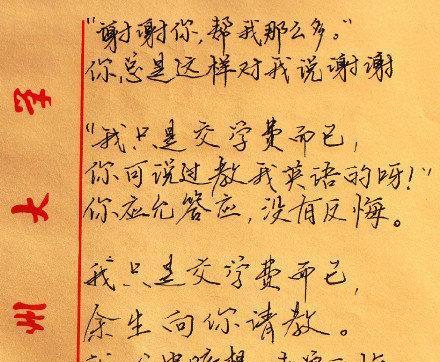 "谢谢你,帮我那么多。"
你总是这样对我说谢谢
"我只是交学费而已,
你可说过教我英语的呀!"
你应允答应,没有反悔。
我只是交学费而已,
余生向你请教。
学
大
州